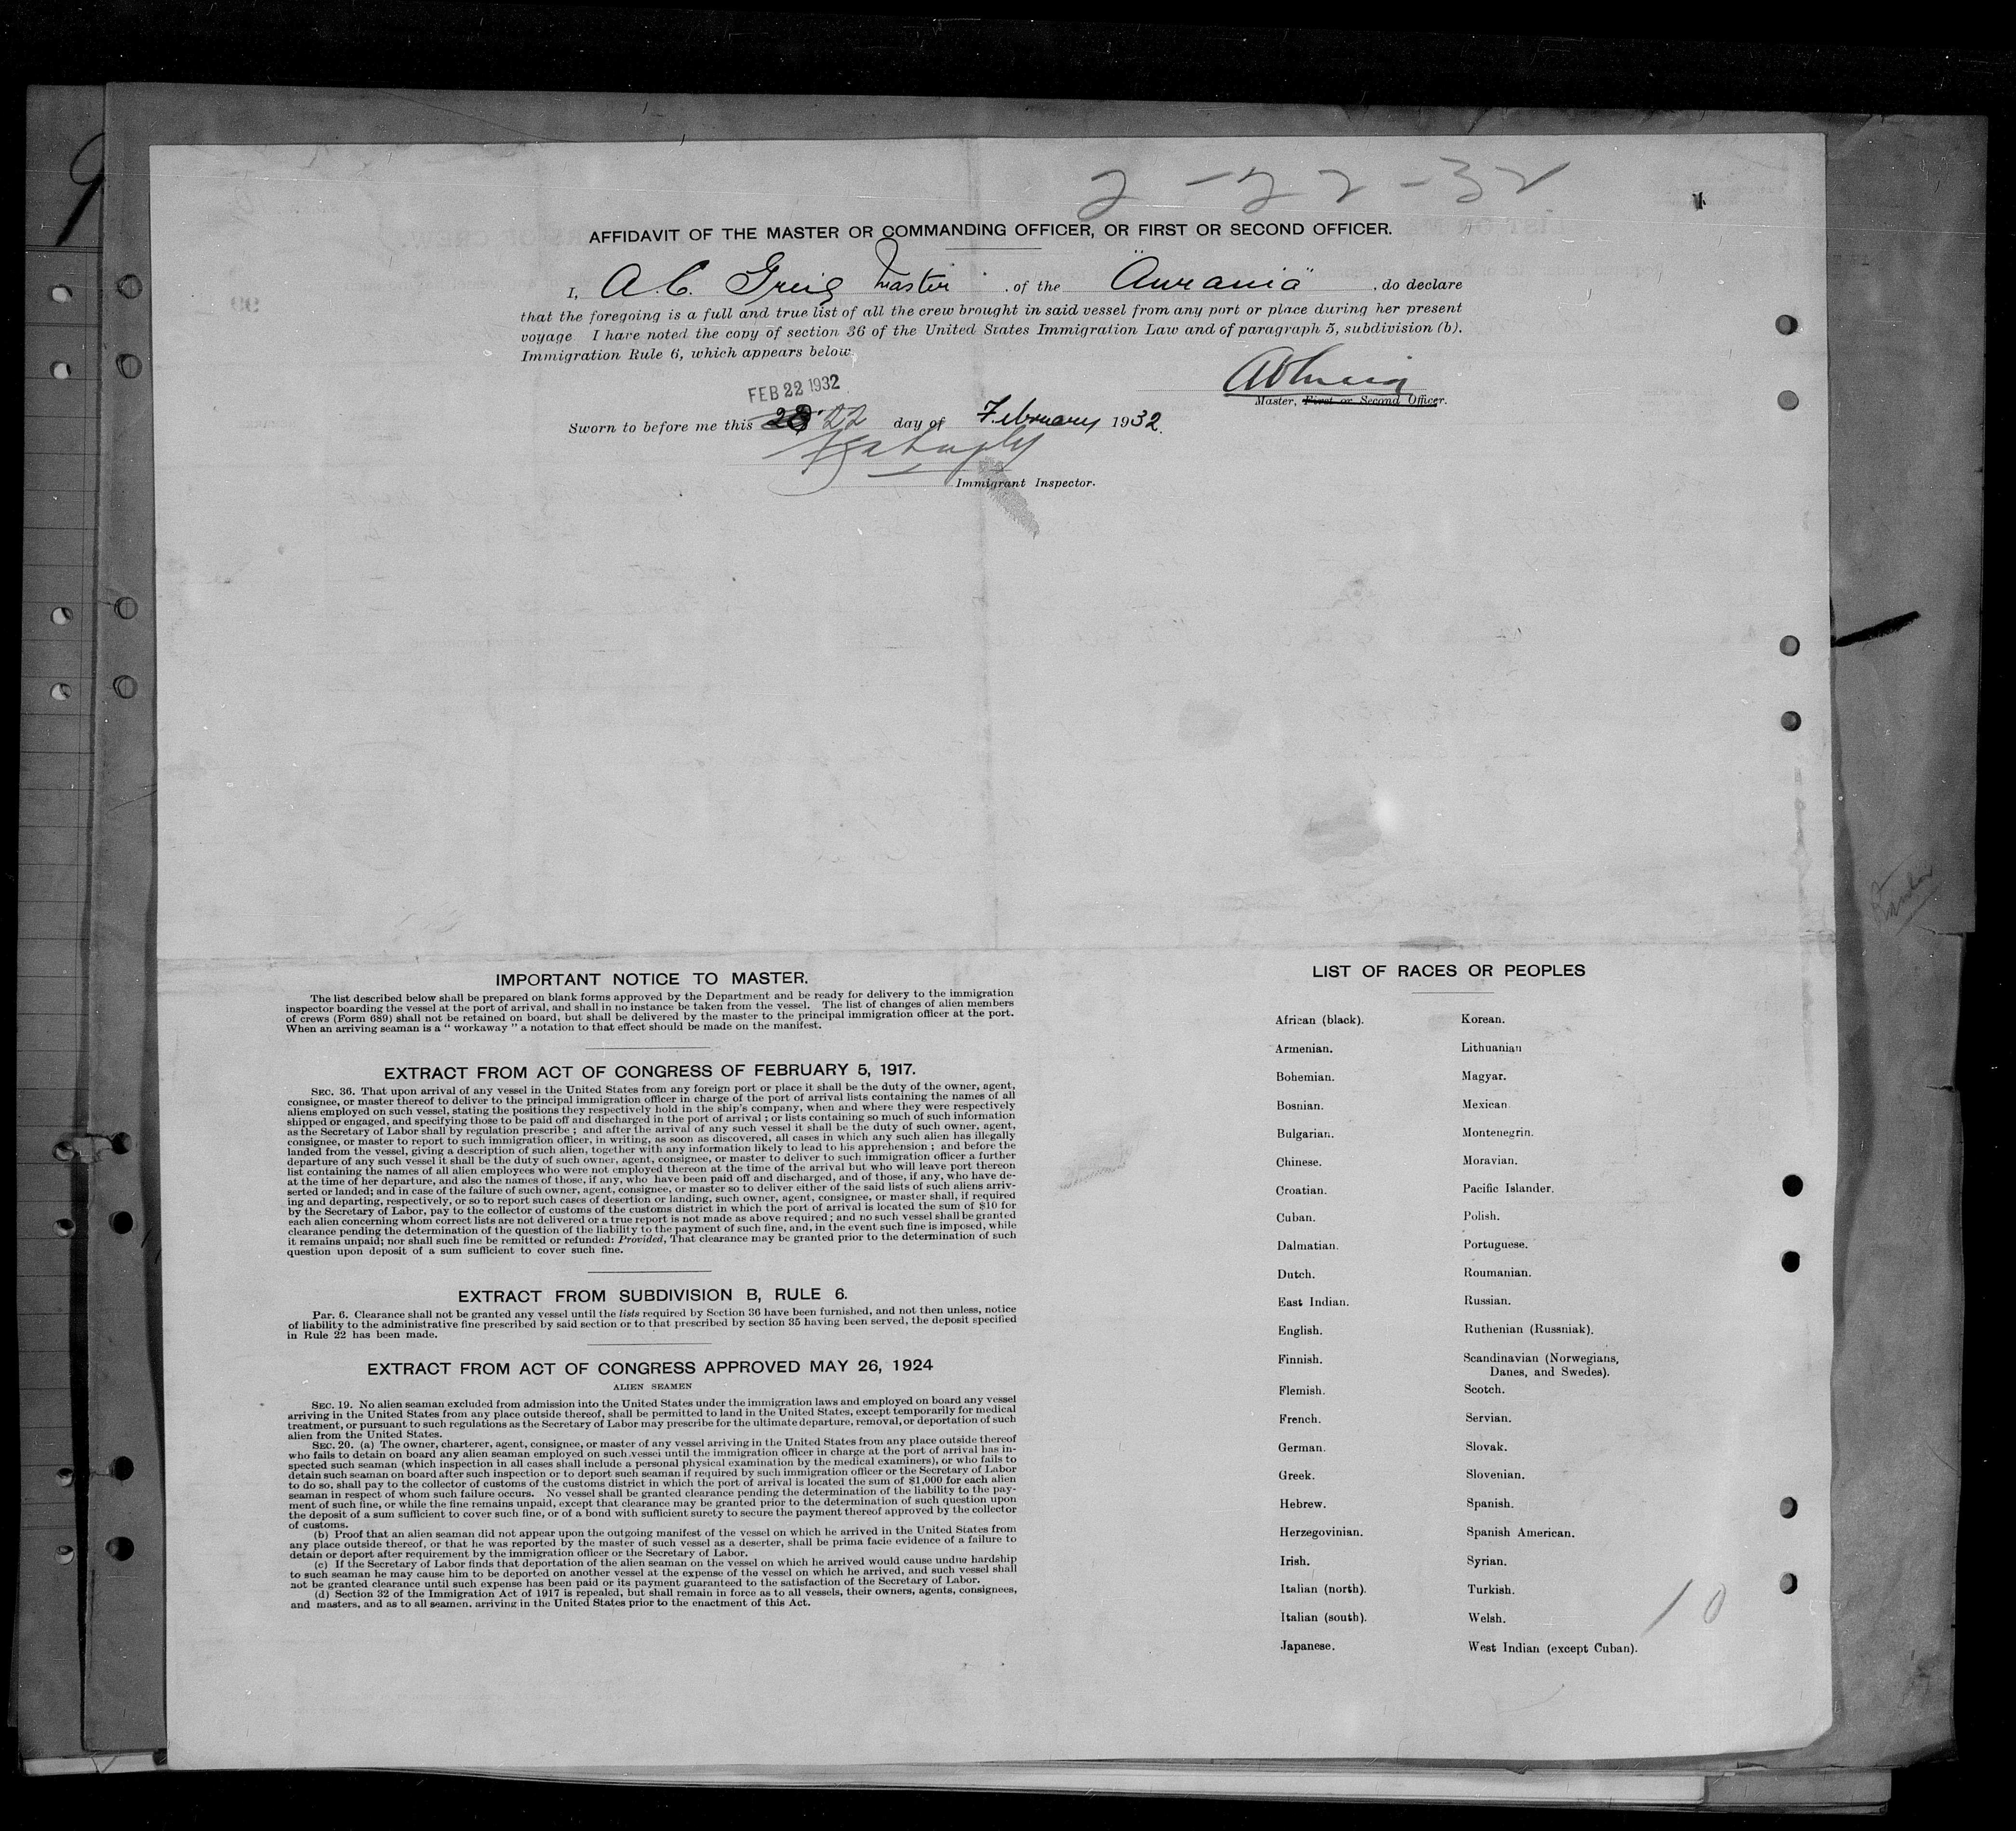 9
2-22-32
AFFIDAVIT OF THE MASTER OR COMMANDING OFFICER, OR FIRST OR SECOND OFFICER.
I, A. C. Greig Master, of the "Aurania", do declare
that the foregoing is a full and true list of all the crew brought in said vessel from any port or place during her present
voyage I have noted the copy of section 36 of the United States Immigration Law and of paragraph 5, subdivision (b).
Immigration Rule 6, which appears below.
Master, First or Second Officer.
FEB 22 1932
Sworn to before me this 22 day of February 1932.
Immigrant Inspector.
IMPORTANT NOTICE TO MASTER.
The list described below shall be prepared on blank forms approved by the Department and be ready for delivery to the immigration
inspector boarding the vessel at the port of arrival, and shall in no instance be taken from the vessel. The list of changes of alien members
of crews (Form 689) shall not be retained on board, but shall be delivered by the master to the principal immigration officer at the port.
When an arriving seaman is a " workaway " a notation to that effect should be made on the manifest.
EXTRACT FROM ACT OF CONGRESS OF FEBRUARY 5, 1917.
SEC. 36. That upon arrival of any vessel in the United States from any foreign port or place it shall be the duty of the owner, agent,
consignee, or master thereof to deliver to the principal immigration officer in charge of the port of arrival lists containing the names of all
aliens employed on such vessel, stating the positions they respectively hold in the ship's company, when and where they were respectively
shipped or engaged, and specifying those to be paid off and discharged in the port of arrival ; or lists containing so much of such information
as the Secretary of Labor shall by regulation prescribe ; and after the arrival of any such vessel it shall be the duty of such owner, agent,
consignee, or master to report to such immigration officer, in writing, as soon as discovered, all cases in which any such alien has illegally
landed from the vessel, giving a description of such alien, together with any information likely to lead to his apprehension ; and before the
departure of any such vessel it shall be the duty of such owner, agent, consignee, or master to deliver to such immigration officer a further
list containing the names of all alien employees who were not employed thereon at the time of the arrival but who will leave port thereon
at the time of her departure, and also the names of those, if any, who have been paid off and discharged, and of those, if any, who have de-
serted or landed; and in case of the failure of such owner, agent, consignee, or master so to deliver either of the said lists of such aliens arriv-
ing and departing, respectively, or so to report such cases of desertion or landing, such owner, agent, consignee, or master shall, if required
by the Secretary of Labor, pay to the collector of customs of the customs district in which the port of arrival is located the sum of $10 for
each alien concerning whom correct lists are not delivered or a true report is not made as above required ; and no such vessel shall be granted
clearance pending the determination of the question of the liability to the payment of such fine, and, in the event such fine is imposed, while
it remains unpaid; nor shall such fine be remitted or refunded: Provided, That clearance may be granted prior to the determination of such
question upon deposit of a sum sufficient to cover such fine.
EXTRACT FROM SUBDIVISION B, RULE 6.
Par. 6. Clearance shall not be granted any vessel until the lists required by Section 36 have been furnished, and not then unless, notice
of liability to the administrative fine prescribed by said section or to that prescribed by section 35 having been served, the deposit specified
in Rule 22 has been made.
EXTRACT FROM ACT OF CONGRESS APPROVED MAY 26, 1924
ALIEN SEAMEN
SEC. 19. No alien seaman excluded from admission into the United States under the immigration laws and employed on board any vessel
arriving in the United States from any place outside thereof, shall be permitted to land in the United States, except temporarily for medical
treatment, or pursuant to such regulations as the Secretary of Labor may prescribe for the ultimate departure, removal, or deportation of such
alien from the United States.
SEC. 20. (a) The owner, charterer, agent, consignee, or master of any vessel arriving in the United States from any place outside thereof
who fails to detain on board any alien seaman employed on such vessel until the immigration officer in charge at the port of arrival has in-
spected such seaman (which inspection in all cases shall include a personal physical examination by the medical examiners), or who fails to
detain such seaman on board after such inspection or to deport such seaman if required by such immigration officer or the Secretary of Labor
to do so, shall pay to the collector of customs of the customs district in which the port of arrival is located the sum of $1,000 for each alien
seaman in respect of whom such failure occurs. No vessel shall be granted clearance pending the determination of the liability to the pay-
ment of such fine, or while the fine remains unpaid, except that clearance may be granted prior to the determination of such question upon
the deposit of a sum sufficient to cover such fine, or of a bond with sufficient surety to secure the payment thereof approved by the collector
of customs.
(b) Proof that an alien seaman did not appear upon the outgoing manifest of the vessel on which he arrived in the United States from
any place outside thereof, or that he was reported by the master of such vessel as a deserter, shall be prima facie evidence of a failure to
detain or deport after requirement by the immigration officer or the Secretary of Labor.
(c) If the Secretary of Labor finds that deportation of the alien seaman on the vessel on which he arrived would cause undue hardship
to such seaman he may cause him to be deported on another vessel at the expense of the vessel on which he arrived, and such vessel shall
not be granted clearance until such expense has been paid or its payment guaranteed to the satisfaction of the Secretary of Labor.
(d) Section 32 of the Immigration Act of 1917 is repealed, but shall remain in force as to all vessels, their owners, agents, consignees,
and masters, and as to all seamen, arriving in the United States prior to the enactment of this Act.
LIST OF RACES OR PEOPLES
African (black).
Armenian.
Bohemian.
Bosnian.
Bulgarian.
Chinese.
Croatian.
Cuban.
Dalmatian.
Dutch.
East Indian.
English.
Finnish.
Flemish.
French.
German.
Greek.
Hebrew.
Herzegovinian.
Irish.
Italian (north).
Italian (south).
Japanese.
Korean.
Lithuanian
Magyar.
Mexican
Montenegrin.
Moravian.
Pacific Islander.
Polish.
Portuguese.
Roumanian.
Russian.
Ruthenian (Russniak).
Scandinavian (Norwegians,
Danes, and Swedes).
Scotch.
Servian.
Slovak.
Slovenian.
Spanish.
Spanish American.
Syrian.
Turkish.
Welsh.
West Indian (except Cuban).
10